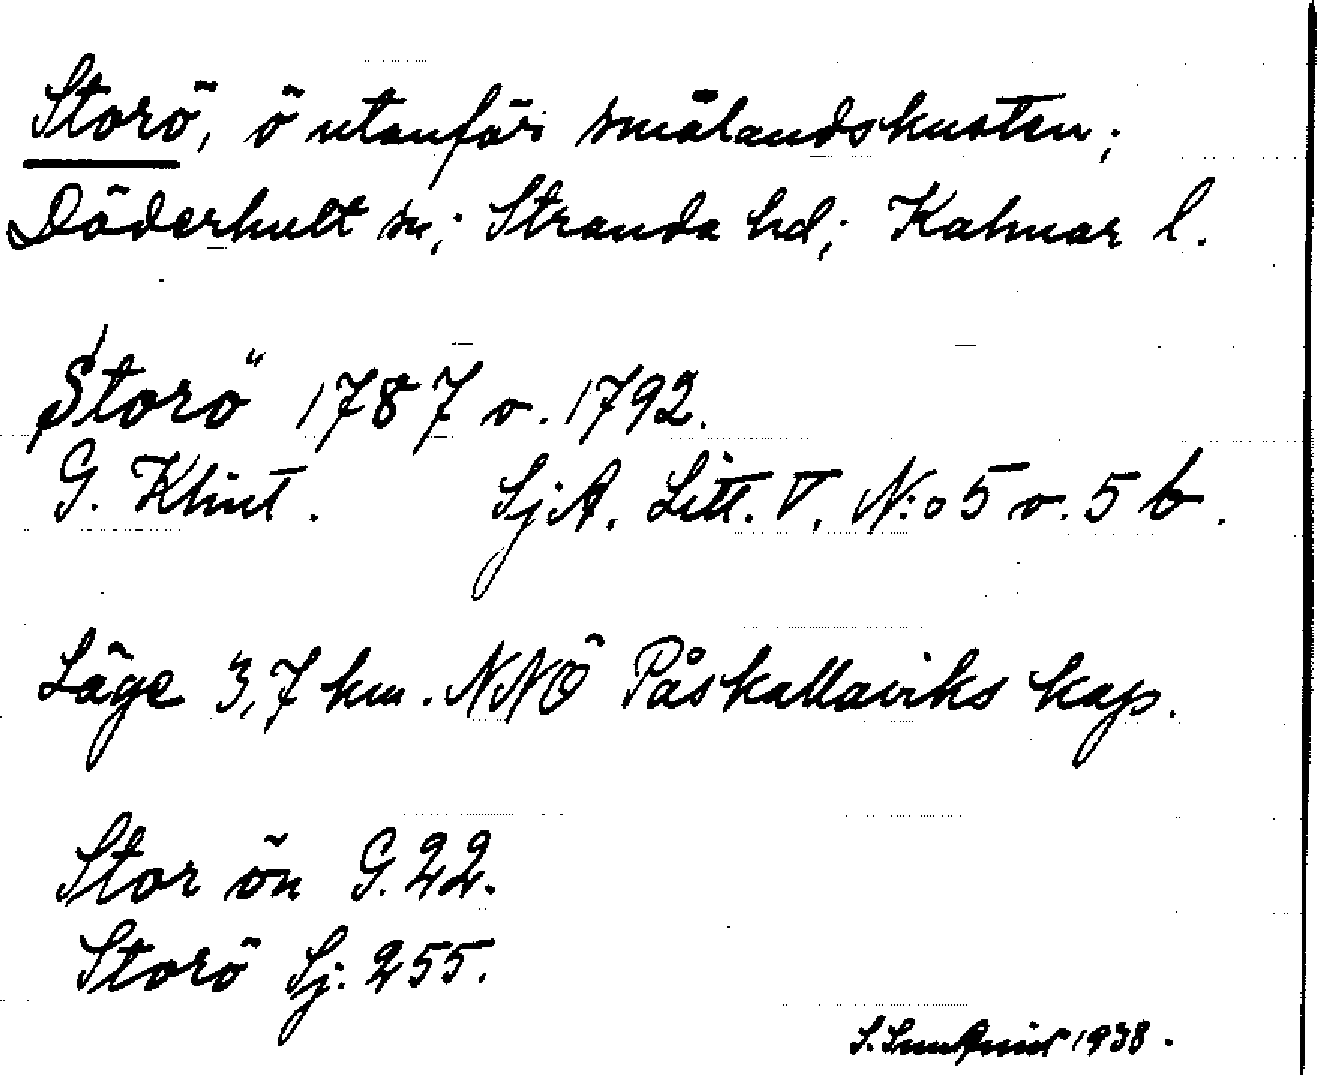 Storö, ö utanför smålandskusten;
Döderhult sn; Stranda hd; Kalmar l.
Storö 1787 o. 1792.
G. Klint. SjA. Litt. V. N:o 5 o. 5 b.
Läge 3,7 km. NNÖ Påskallaviks kap.
Stor ön G. 22.
Storö Sj. 255.
S. 1938.